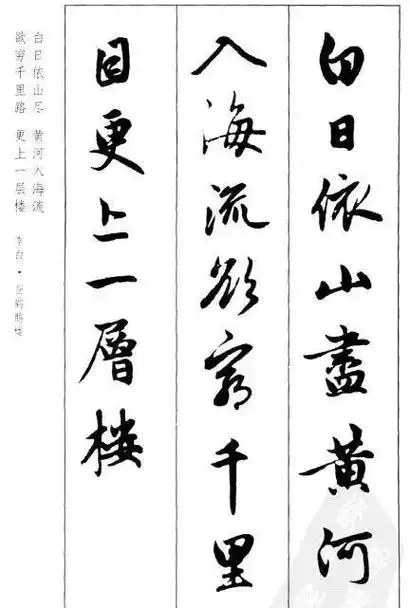 白日依山盡黄河
入海流欲窮千里
目更上一層楼
白日依山尽 黄河入海流
欲穷千里路 更上一层楼 李白·登鹳雀楼